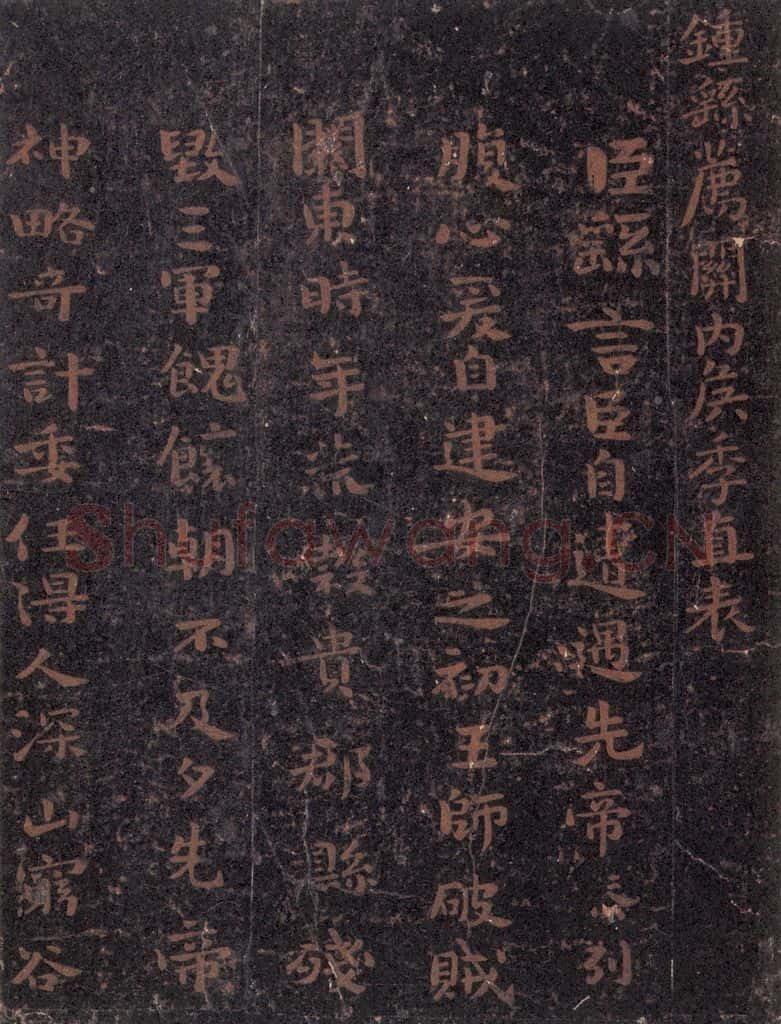 鍾繇薦關內侯季直表
臣繇言臣自遭遇先帝忝列
腹心爰自建安之初王師破賊
關東時年荒穀貴郡縣殘
毀三軍餽饟朝不及夕先帝
神略奇計委任得人深山窮谷
Shufawang.CN